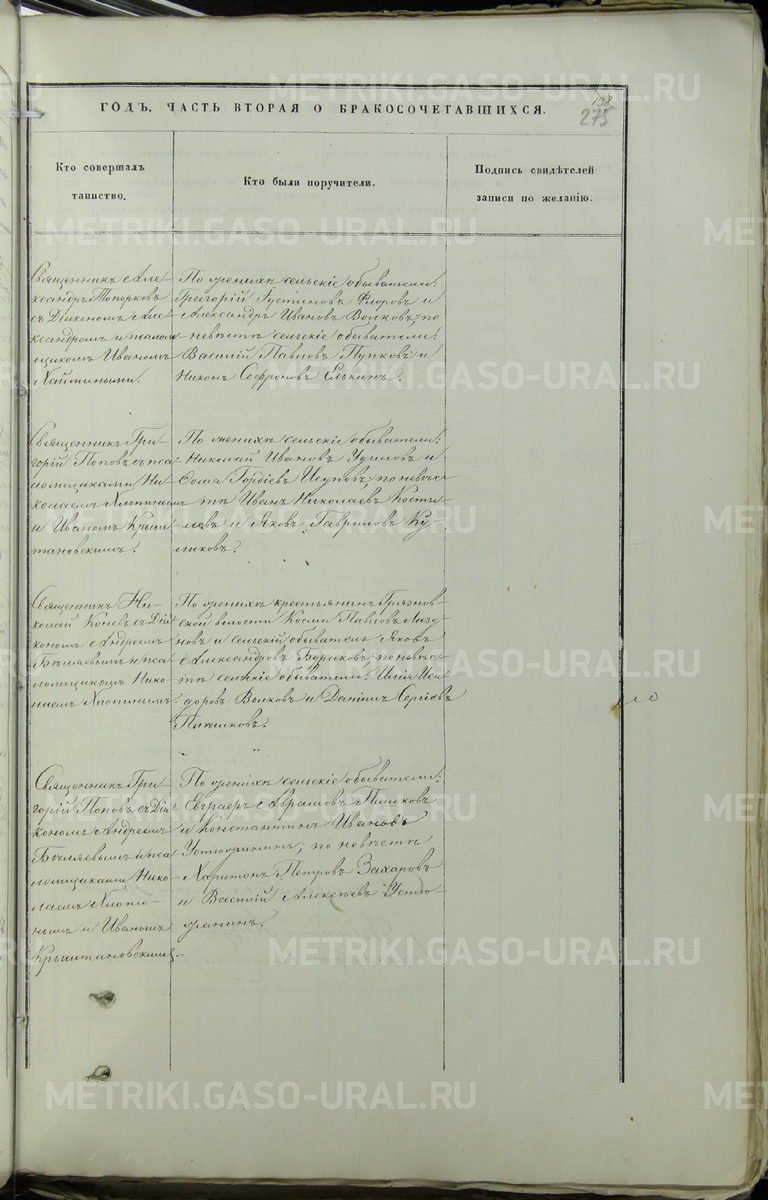 198
275
ГОДЪ. ЧАСТЬ ВТОРАЯ О БРАКОСОЧЕТАВШИХСЯ.
Кто совершалъ
таинство.
Кто были поручители.
Подпись свидѣтелей
записи по желанію.
Священникъ Але-
ксандръ Топорковъ
съ Діакономъ Але-
ксандромъ и псалом-
щикомъ Иваномъ
Хаймиными.
По женихѣ сельскіе обыватели:
Григорій Густиновъ Флоровъ и
Александръ Ивановъ Волковъ; по
невѣстѣ сельскіе обыватели:
Василій Павловъ Пупковъ и
Никонъ Софроновъ Елькинъ.
Священникъ Гри-
горій Поповъ съ пса-
ломщиками Ни-
колаемъ Хлопинымъ
и Иваномъ Крыш-
тановскимъ.
По женихѣ сельскіе обыватели:
Николай Ивановъ и
Ѳома Гордіевъ Исуповъ; по невѣс-
тѣ Иванъ Николаевъ Косты-
левъ и Яковъ Гавриловъ Ку-
ликовъ.
Священникъ Ни-
колай Коневъ съ Діа-
кономъ Андреемъ
Бѣляевымъ и пса-
ломщикомъ Нико-
лаемъ Хлопинымъ.
По женихѣ крестьянинъ Грязнов-
ской волости Косма Павловъ Лизу-
новъ и сельскій обыватель Яковъ
Александровъ Буриковъ; по невѣс-
тѣ сельскіе обыватели: Илія Иси-
доровъ Волковъ и Даніилъ Сергіевъ
Плишковъ.
Священникъ Гри-
горій Поповъ съ Діа-
кономъ Андреемъ
Бѣляевымъ и пса-
ломщиками Нико-
лаемъ Хлопи-
нымъ и Иваномъ
Крыштановскимъ.
По женихѣ сельскіе обыватели:
Евграфъ Аврамовъ Поликовъ
и Константинъ Ивановъ
Устюжанинъ; по невѣстѣ
Харитонъ Петровъ Захаровъ
и Василій Алексѣевъ Устю-
жанинъ.
METRIKI.GASO-URAL.RU